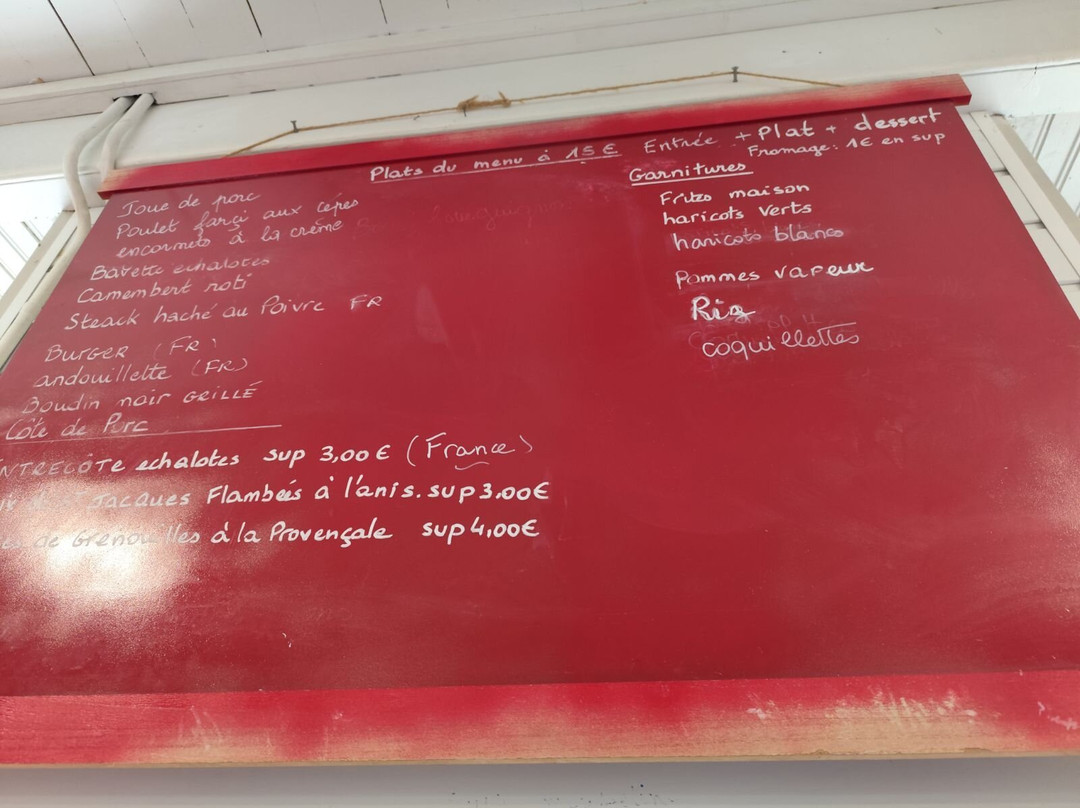 Plats du menu à 15 € Entrée + Plat + dessert
Fromage: 1€ en sup
Joue de porc
Poulet farçi aux cèpes
encornets à la crème
Bavette echalotes
Camembert roti
Steack haché au Poivre FR
Burger (FR)
andouillette (FR)
Boudin noir GRILLÉ
Côte de Porc
NTRECÔTe echalotes sup 3,00 € (France)
Jacques Flambées à l'anis. sup 3,00€
de Grenouilles à la Provençale sup 4,00€
Garnitures
Frites maison
haricots verts
haricots blancs
Pommes vapeur
Riz
coquillettes